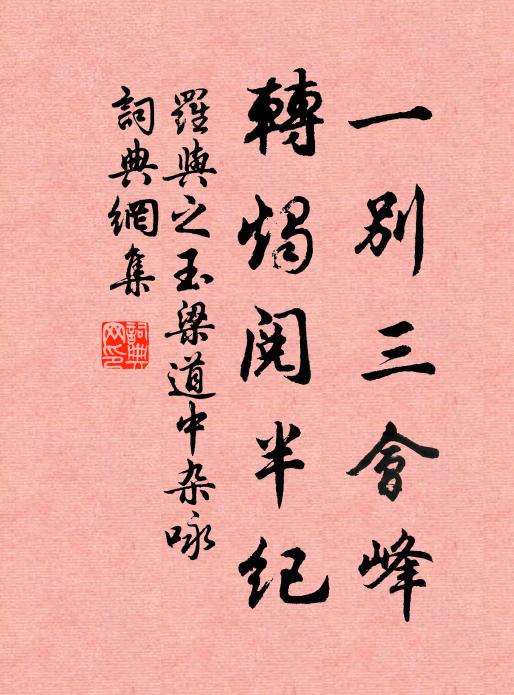 一別三會峰
轉燭閱半紀
羅與之玉梁道中杂咏
詞典網集
詞典網印